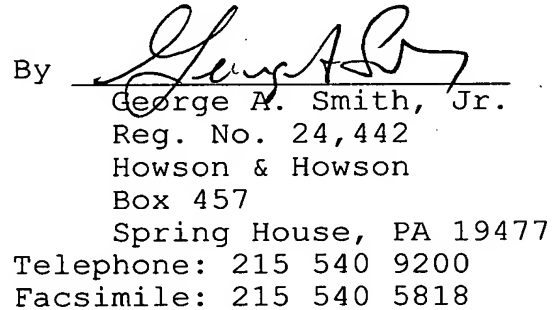 By
George A. Smith, Jr.
Reg. No. 24,442
Howson & Howson
Box 457
Spring House, PA 19477
Telephone: 215 540 9200
Facsimile: 215 540 5818